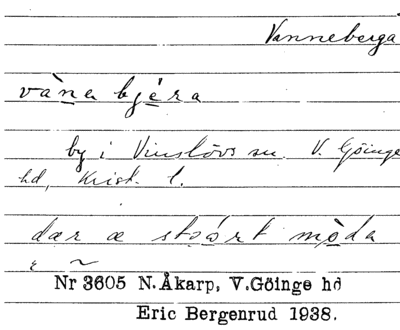 Vanneberga
vàna bjéra
by i Vinslövs sn. V. Göinge
hd, Krist. l.
dær æ stoårt mòda
Nr 3605 N.Åkarp, V.Göinge hd
Eric Bergenrud 1938.